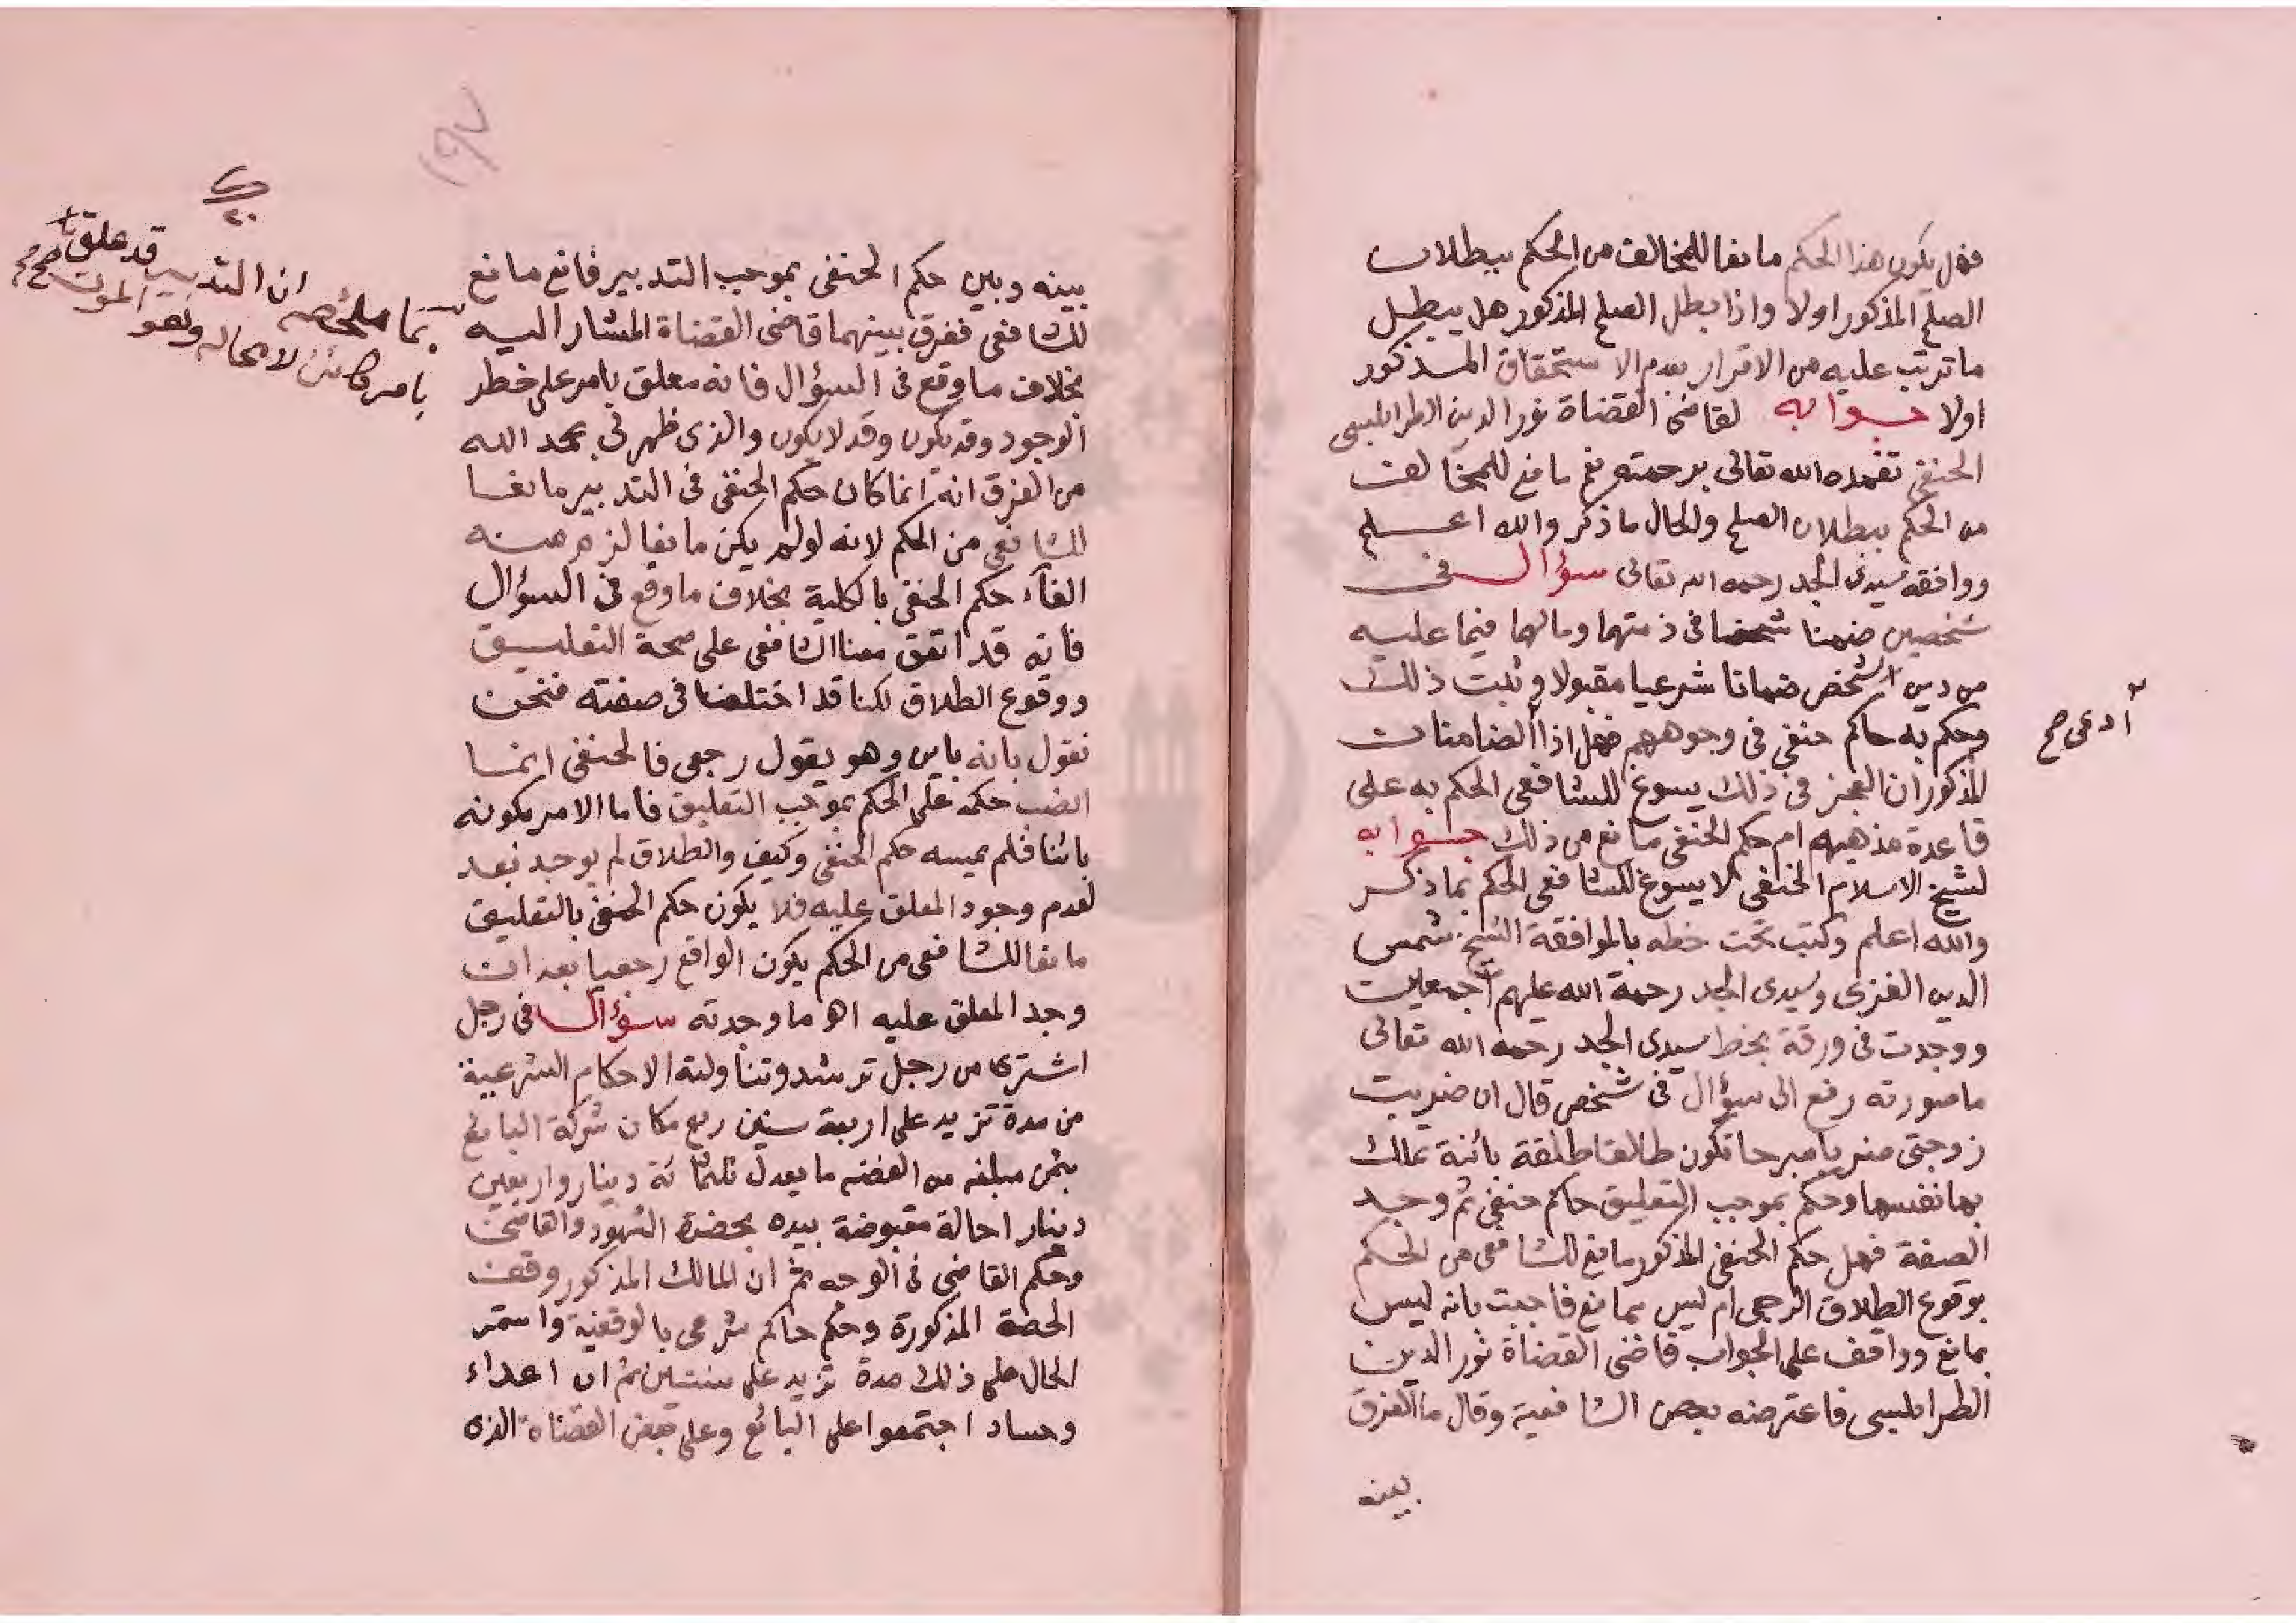 فهل يكون هذا الحكم مانعا للمخالف من الحكم ببطلان
الصلح المذكور اولا واذا بطل الصلح المذكور هل يبطل
ما ترتب عليه من الاقرار بعدم الاستحقاق المذكور
اولا جوابه لقاضى القضاة نور الدين الطرابلسى
الحنفى تغمده الله تعالى برحمته نعم مانع للمخالف
من الحكم ببطلان الصلح والحال ما ذكر والله اعلم
ووافقه سيدى الجد رحمه الله تعالى سؤال فى
شخصين ضمنا شخصا فى ذمتهما ومالهما فيما عليه
من دين الشخص ضمانا شرعيا مقبولا وثبت ذلك
وحكم به حاكم حنفى فى وجوههم فهل اذا الضامنان
ادعى صح
المذكوران العجز فى ذلك يسوغ للشافعى الحكم به على
قاعدة مذهبه ام حكم الحنفى مانع من ذلك جوابه
لشيخ الاسلام الحنفى لا يسوغ للشافعى الحكم بما ذكر
والله اعلم وكتب تحت خطه بالموافقة الشيخ شمس
الدين الغزى وسيدى الجد رحمة الله عليهم اجمعين
ووجدت فى ورقة بخط سيدى الجد رحمه الله تعالى
ما صورته رفع الى سؤال فى شخص قال ان ضربت
زوجتى ضربا مبرحا تكون طالقا طلقة بائنة تملك
بها نفسها وحكم بموجب التعليق حاكم حنفى ثم وجد
الصفة فهل حكم الحنفى المذكور مانع للشافعى من الحكم
بوقوع الطلاق الرجعى ام ليس بمانع فاجبت بانه ليس
بمانع ووافق على الجواب قاضى القضاة نور الدين
الطرابلسى فاعترضه بعض الشافعية وقال ما الفرق
بينه
١٩٧
بينه وبين حكم الحنفى بموجب التدبير فانع مانع
للشافعى ففرق بينهما قاضى القضاة المشار اليه
بما ملخصه ان التدبير قد علق
بامر كائن لا محاله وهو الموت صح
بخلاف ما وقع فى السؤال فانه معلق بامر على خطر
الوجود وقد يكون وقد لا يكون والذى ظهر لى بحمد الله
من الفرق انه انما كان حكم الحنفى فى التدبير مانعا
للشافعى من الحكم لانه لو لم يكن مانعا لزم منه
الغاء حكم الحنفى بالكلية بخلاف ما وقع فى السؤال
فانه قد اتفق معنا الشافعى على صحة التعليق
ووقوع الطلاق لكنا قد اختلفنا فى صفته فنحن
نقول بانه باين وهو يقول رجعى فالحنفى انما
انصب حكمه على الحكم بموجب التعليق فاما الامر بكونه
بائنا فلم يمسه حكم الحنفى وكيف والطلاق لم يوجد بعد
لعدم وجود المعلق عليه فلا يكون حكم الحنفى بالتعليق
مانعا للشافعى من الحكم بكون الواقع رجعيا بعد ان
وجد المعلق عليه اه ما وجدته سؤال فى رجل
اشترى من رجل ترشد وتناولته الاحكام الشرعية
من مدة تزيد على اربعة سنين ربع مكان شركة البائع
بثمن مبلغه من الفضه ما يعدل ثلثمائة دينار واربعين
دينار احالة مقبوضة بيده بحضرة الشهود والقاضى
وحكم القاضى فى الوجه ثم ان المالك المذكور وقف
الحصة المذكورة وحكم حاكم شرعى بالوقفية واستمر
الحال على ذلك مدة تزيد على سنتين ثم ان اعداء
وحساد اجتمعوا على البائع وعلى بعض القضاة الذى